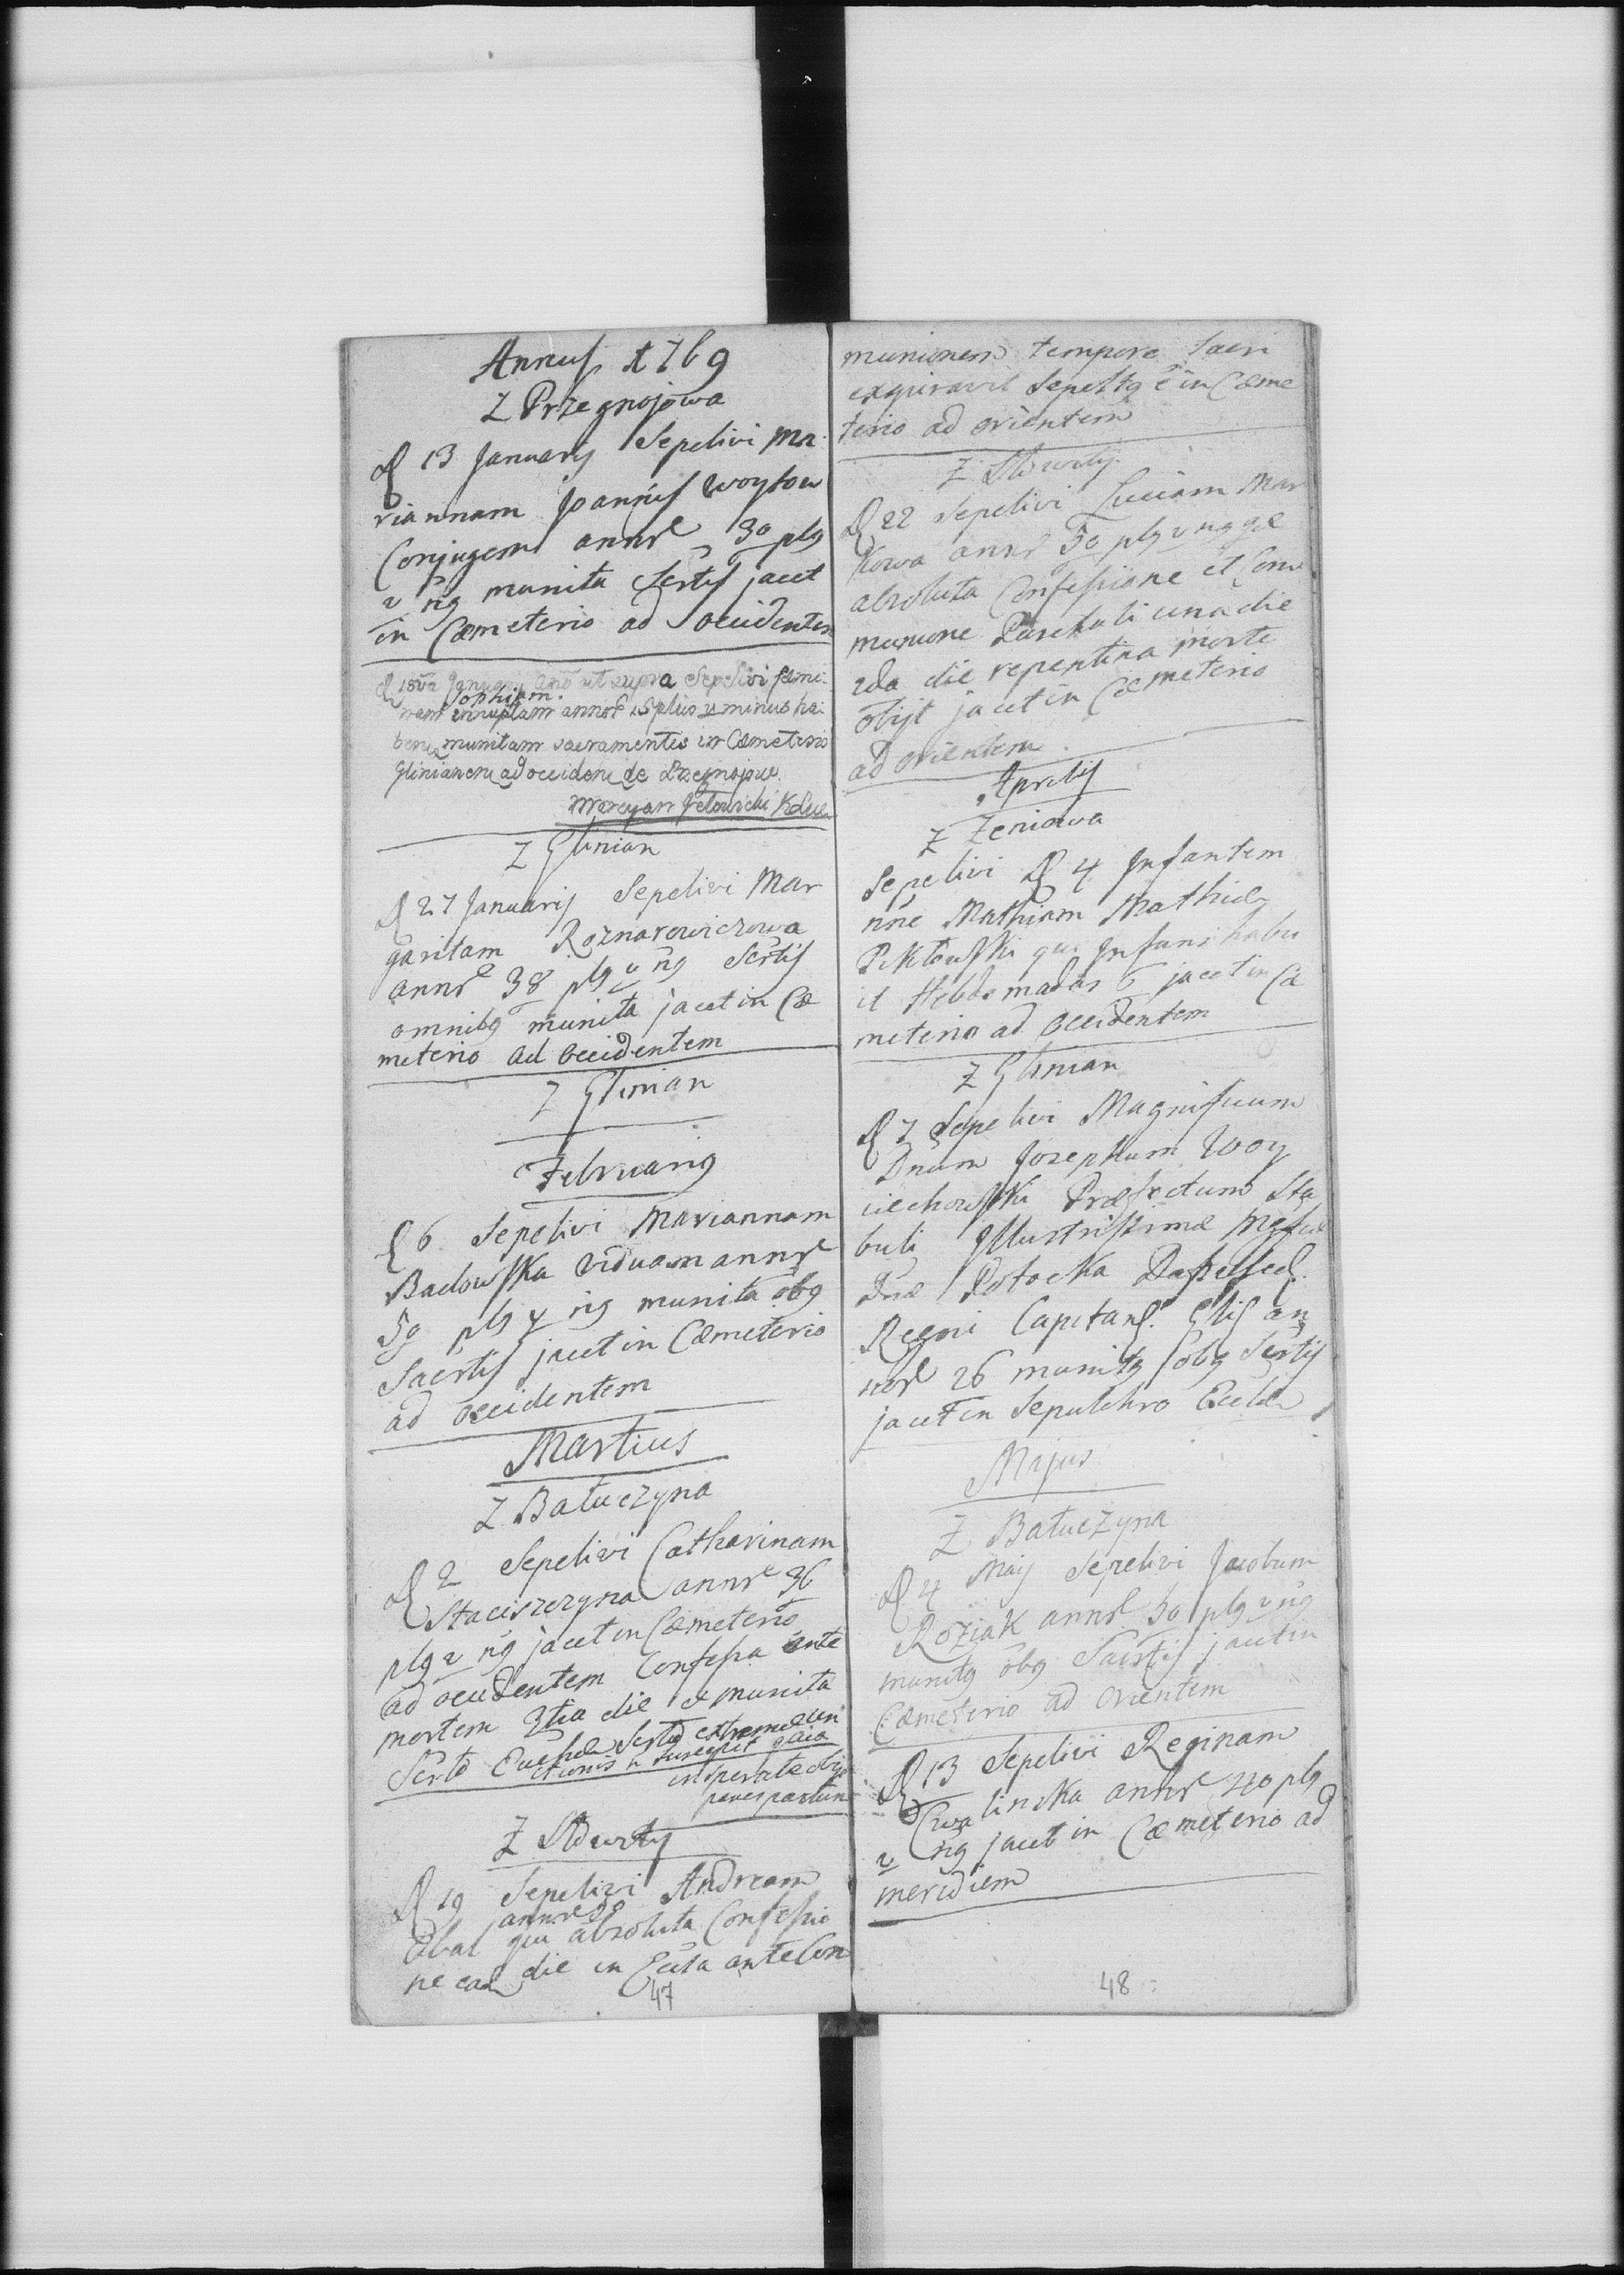 Annus 1769
Z Przegnojowa
D 13 January Sepelivi Ma
riannam Joannis Woytow
Conjugem annor 30 plg
v ng munita Sctis jacet
in Cæmeterio ad occidentem
D 18va January Ano ut supra Sepelivi fæmi
Sophiam
nam innuptam annor 15 plus v minus ha
bene munitam sacramentis in Cæmeterio
Glinianen ad occiden de Przegnojow
Marcyan
Z Glinian
D 27 Januarij Sepelivi Mar
garitam Roznarowiczowa
annor 38 plg v ng Sctis
omnibg munita jacet in Cæ
meterio ad occidentem
Z Glinian
Februarig
D 6 Sepelivi Mariannam
Badowska viduam annor
50 plg v ng munita obg
Sacrtis jacet in Cæmeterio
ad occidentem
Martius
Z Batuczyna
D 2 Sepelivi Catharinam
Staciszczyna annor 36
plg v ng jacet in Cæmeterio
ad occidentem Confessa ante
mortem 3tia die et munita
Scrto Euchar Scrto extremæ un
ctionis n suscepit quia
insperate obijt
penes partum
Z Słowity
D 19 Sepelivi Andream
annor 20
qui absoluta Confessio
ne ead die in Eccla ante Com
47
munionem tempore Sacri
expiravit Sepeltg e in Cæme
terio ad orientem
Z Słowity
D 22 Sepelivi Luciam Mar
kowa annor 50 plg v ng quæ
absoluta Confessione et Com
munione Paschali una die
2da die repentina morte
obijt jacet in Cæmeterio
ad orientem
Aprilis
Z Zeniowa
Sepelivi D 4 Infantem
nne Mathiam Mathiæ
qui Infans habu
it Hebdomadas 6 jacet in Cæ
meterio ad occidentem
Z Glinian
D 7 Sepelivi Magnificum
Dnum Josephum Woy
ciechowski Præfectum Sta
buli Illustrissimæ Mgfcæ
Dnæ Potocka
Regni Capitan an
nor 26 munitg obg Sctis
jacet in Sepulchro Eccle
Majus
Z Batuczyna
D 4 Maij Sepelivi Jacobum
Roziak annor 50 plg v ng
munitg obg Sacrtis jacet in
Cæmeterio ad orientem
D 13 Sepelivi Reginam
Cwalinska annor 40 plg
v ng jacet in Cæmeterio ad
meridiem
48